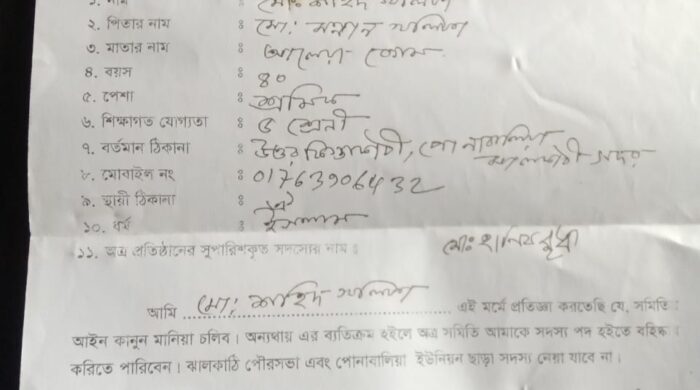 ১. নাম ঃ মোঃ জাহিদ খলিফা
২. পিতার নাম ঃ মো: মন্নান খলিফা
৩. মাতার নাম ঃ আলেয়া বেগম
৪. বয়স ঃ ৪০
৫. পেশা ঃ শ্রমিক
৬. শিক্ষাগত যোগ্যতা ঃ ৫ শ্রেনী
৭. বর্তমান ঠিকানা ঃ উত্তর, পোনাবালিয়া
ঝালকাঠী সদর
৮. মোবাইল নং ঃ 01763906432
৯. স্থায়ী ঠিকানা ঃ ঐ
১০. ধর্ম ঃ ইসলাম
১১. অত্র প্রতিষ্ঠানের সুপারিশকৃত সদস্যের নাম ঃ মোঃ হানিফ মৃধা
আমি মো: জাহিদ খলিফা এই মর্মে প্রতিজ্ঞা করতেছি যে, সমিতি :
আইন কানুন মানিয়া চলিব। অন্যথায় এর ব্যতিক্রম হইলে অত্র সমিতি আমাকে সদস্য পদ হইতে বহিষ্ক
করিতে পারিবেন। ঝালকাঠি পৌরসভা এবং পোনাবালিয়া ইউনিয়ন ছাড়া সদস্য নেয়া যাবে না।